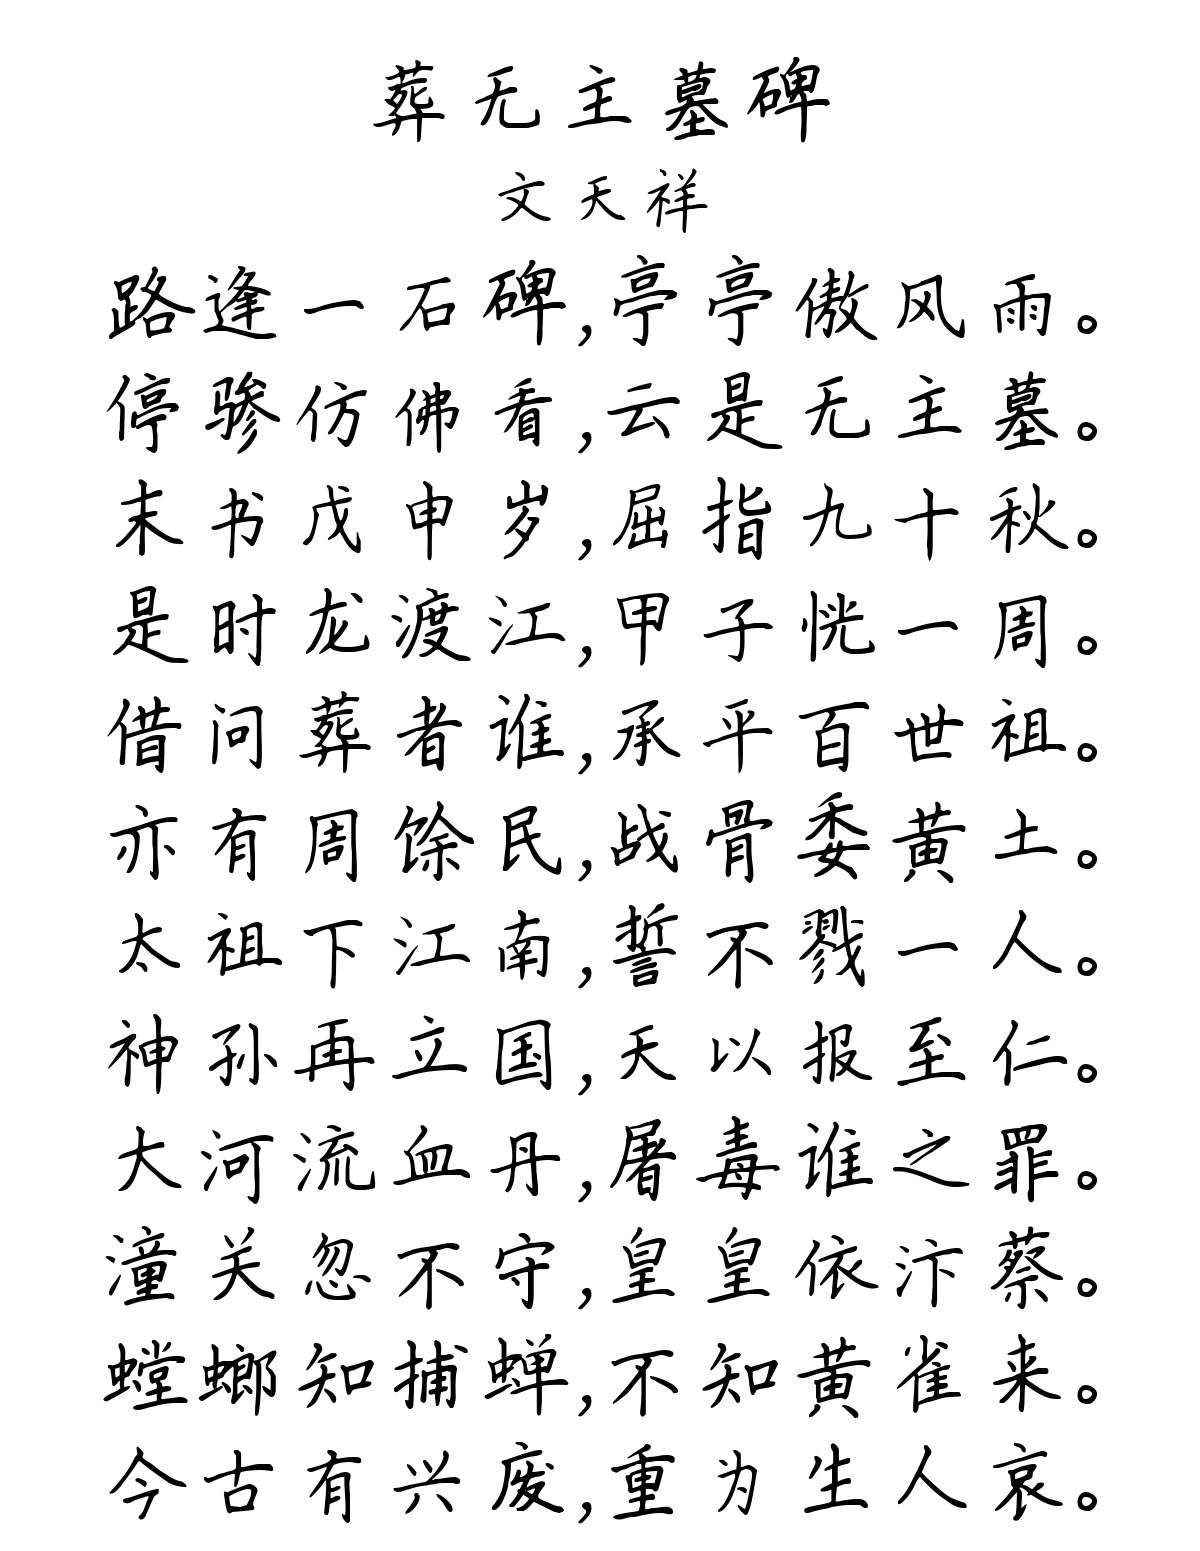 葬无主墓碑
文天祥
路逢一石碑,亭亭傲风雨。
停骖仿佛看,云是无主墓。
末书戊申岁,屈指九十秋。
是时龙渡江,甲子恍一周。
借问葬者谁,承平百世祖。
亦有周馀民,战骨委黄土。
太祖下江南,誓不戮一人。
神孙再立国,天以报至仁。
大河流血丹,屠毒谁之罪。
潼关忽不守,皇皇依汴蔡。
螳螂知捕蝉,不知黄雀来。
今古有兴废,重为生人哀。